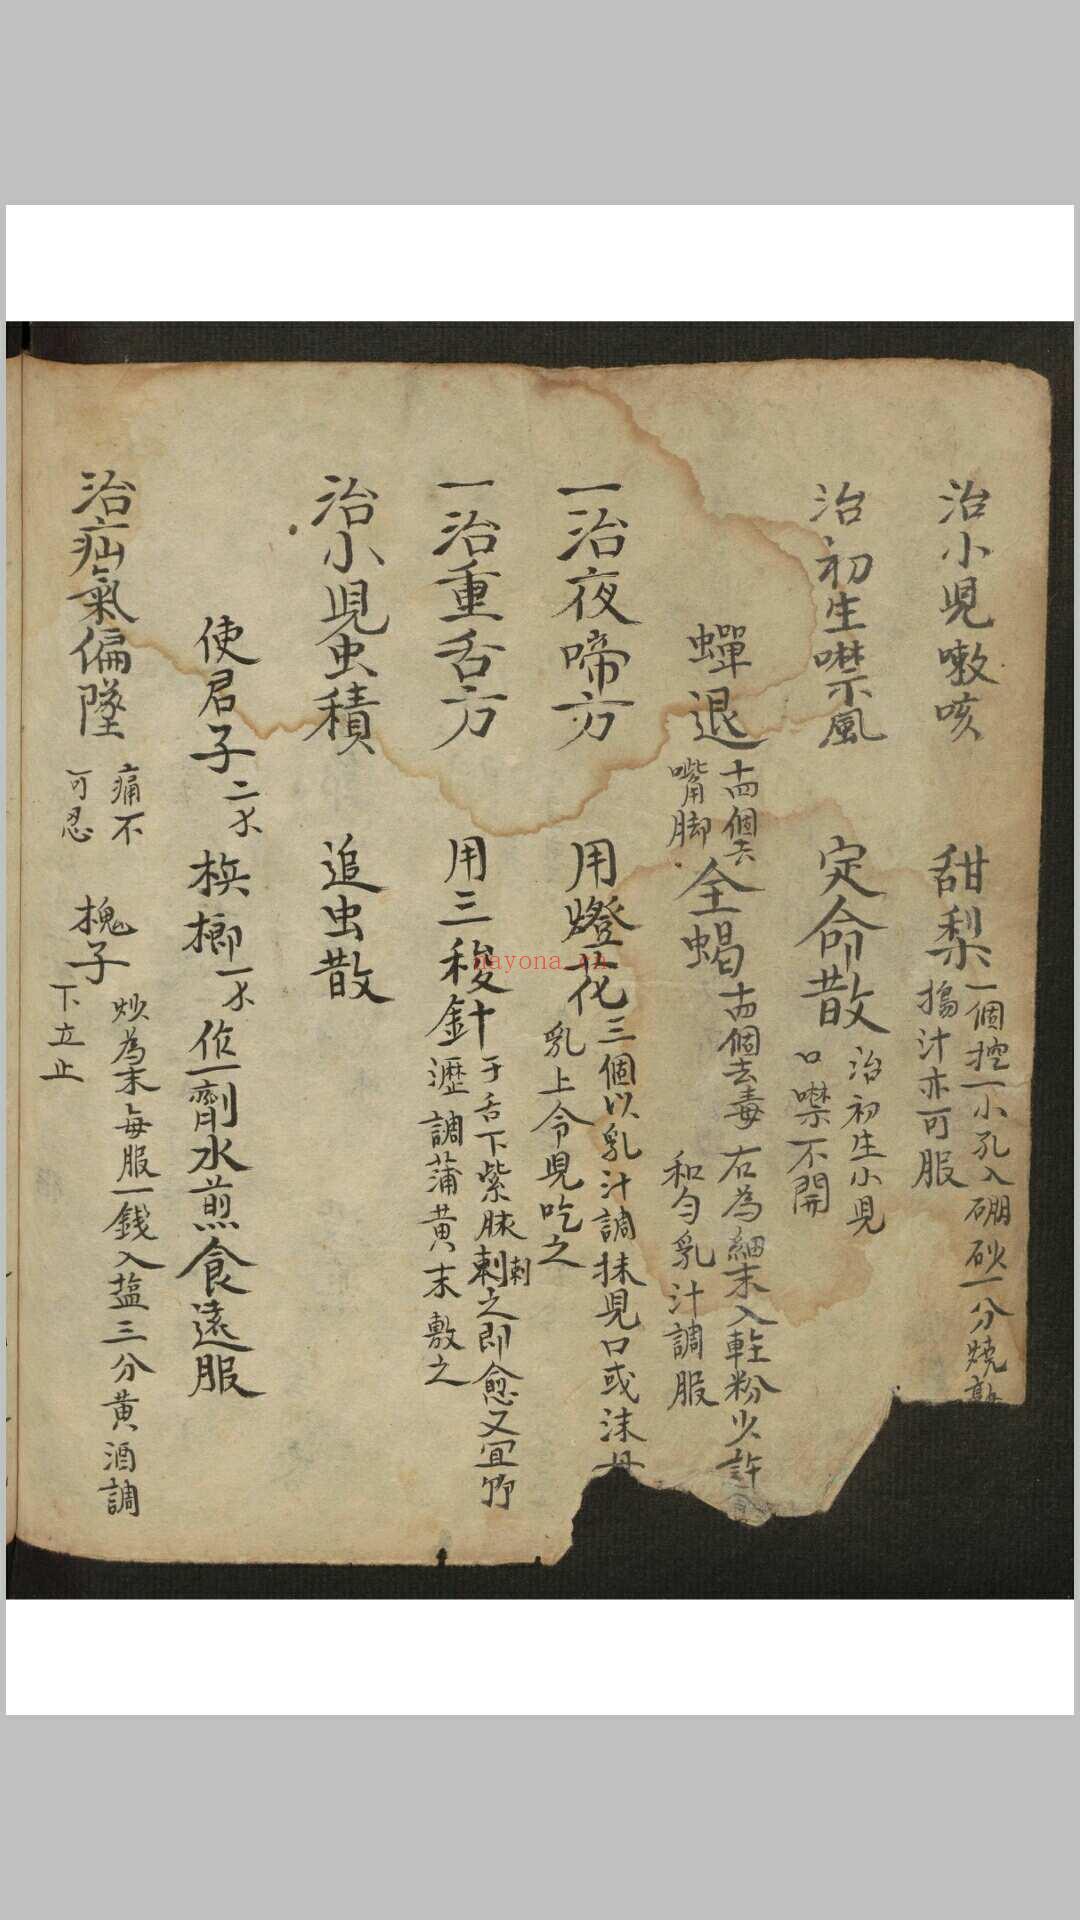 治小児嗽咳
甜梨一個挖一小孔入硼砂一分燒熟
搗汁亦可服
治初生噤風
定命散治初生小児
口噤不開
蟬退十四個去
嘴脚
全蝎十四個去毒
右為細末入輕粉少許
和勻乳汁調服
一治夜啼方
用燈花三個以乳汁調抹児口或沫母
乳上令児吃之
一治重舌方
用三稜針于舌下紫脉刺之即愈又宜
瀝調蒲黄末敷之
治小児虫積
追虫散
使君子二
榔一
作一劑水煎食遠服
治疝氣偏墜痛不
可忍
槐子炒為末每服一錢入塩三分黄酒調
下立止
nayona.cn